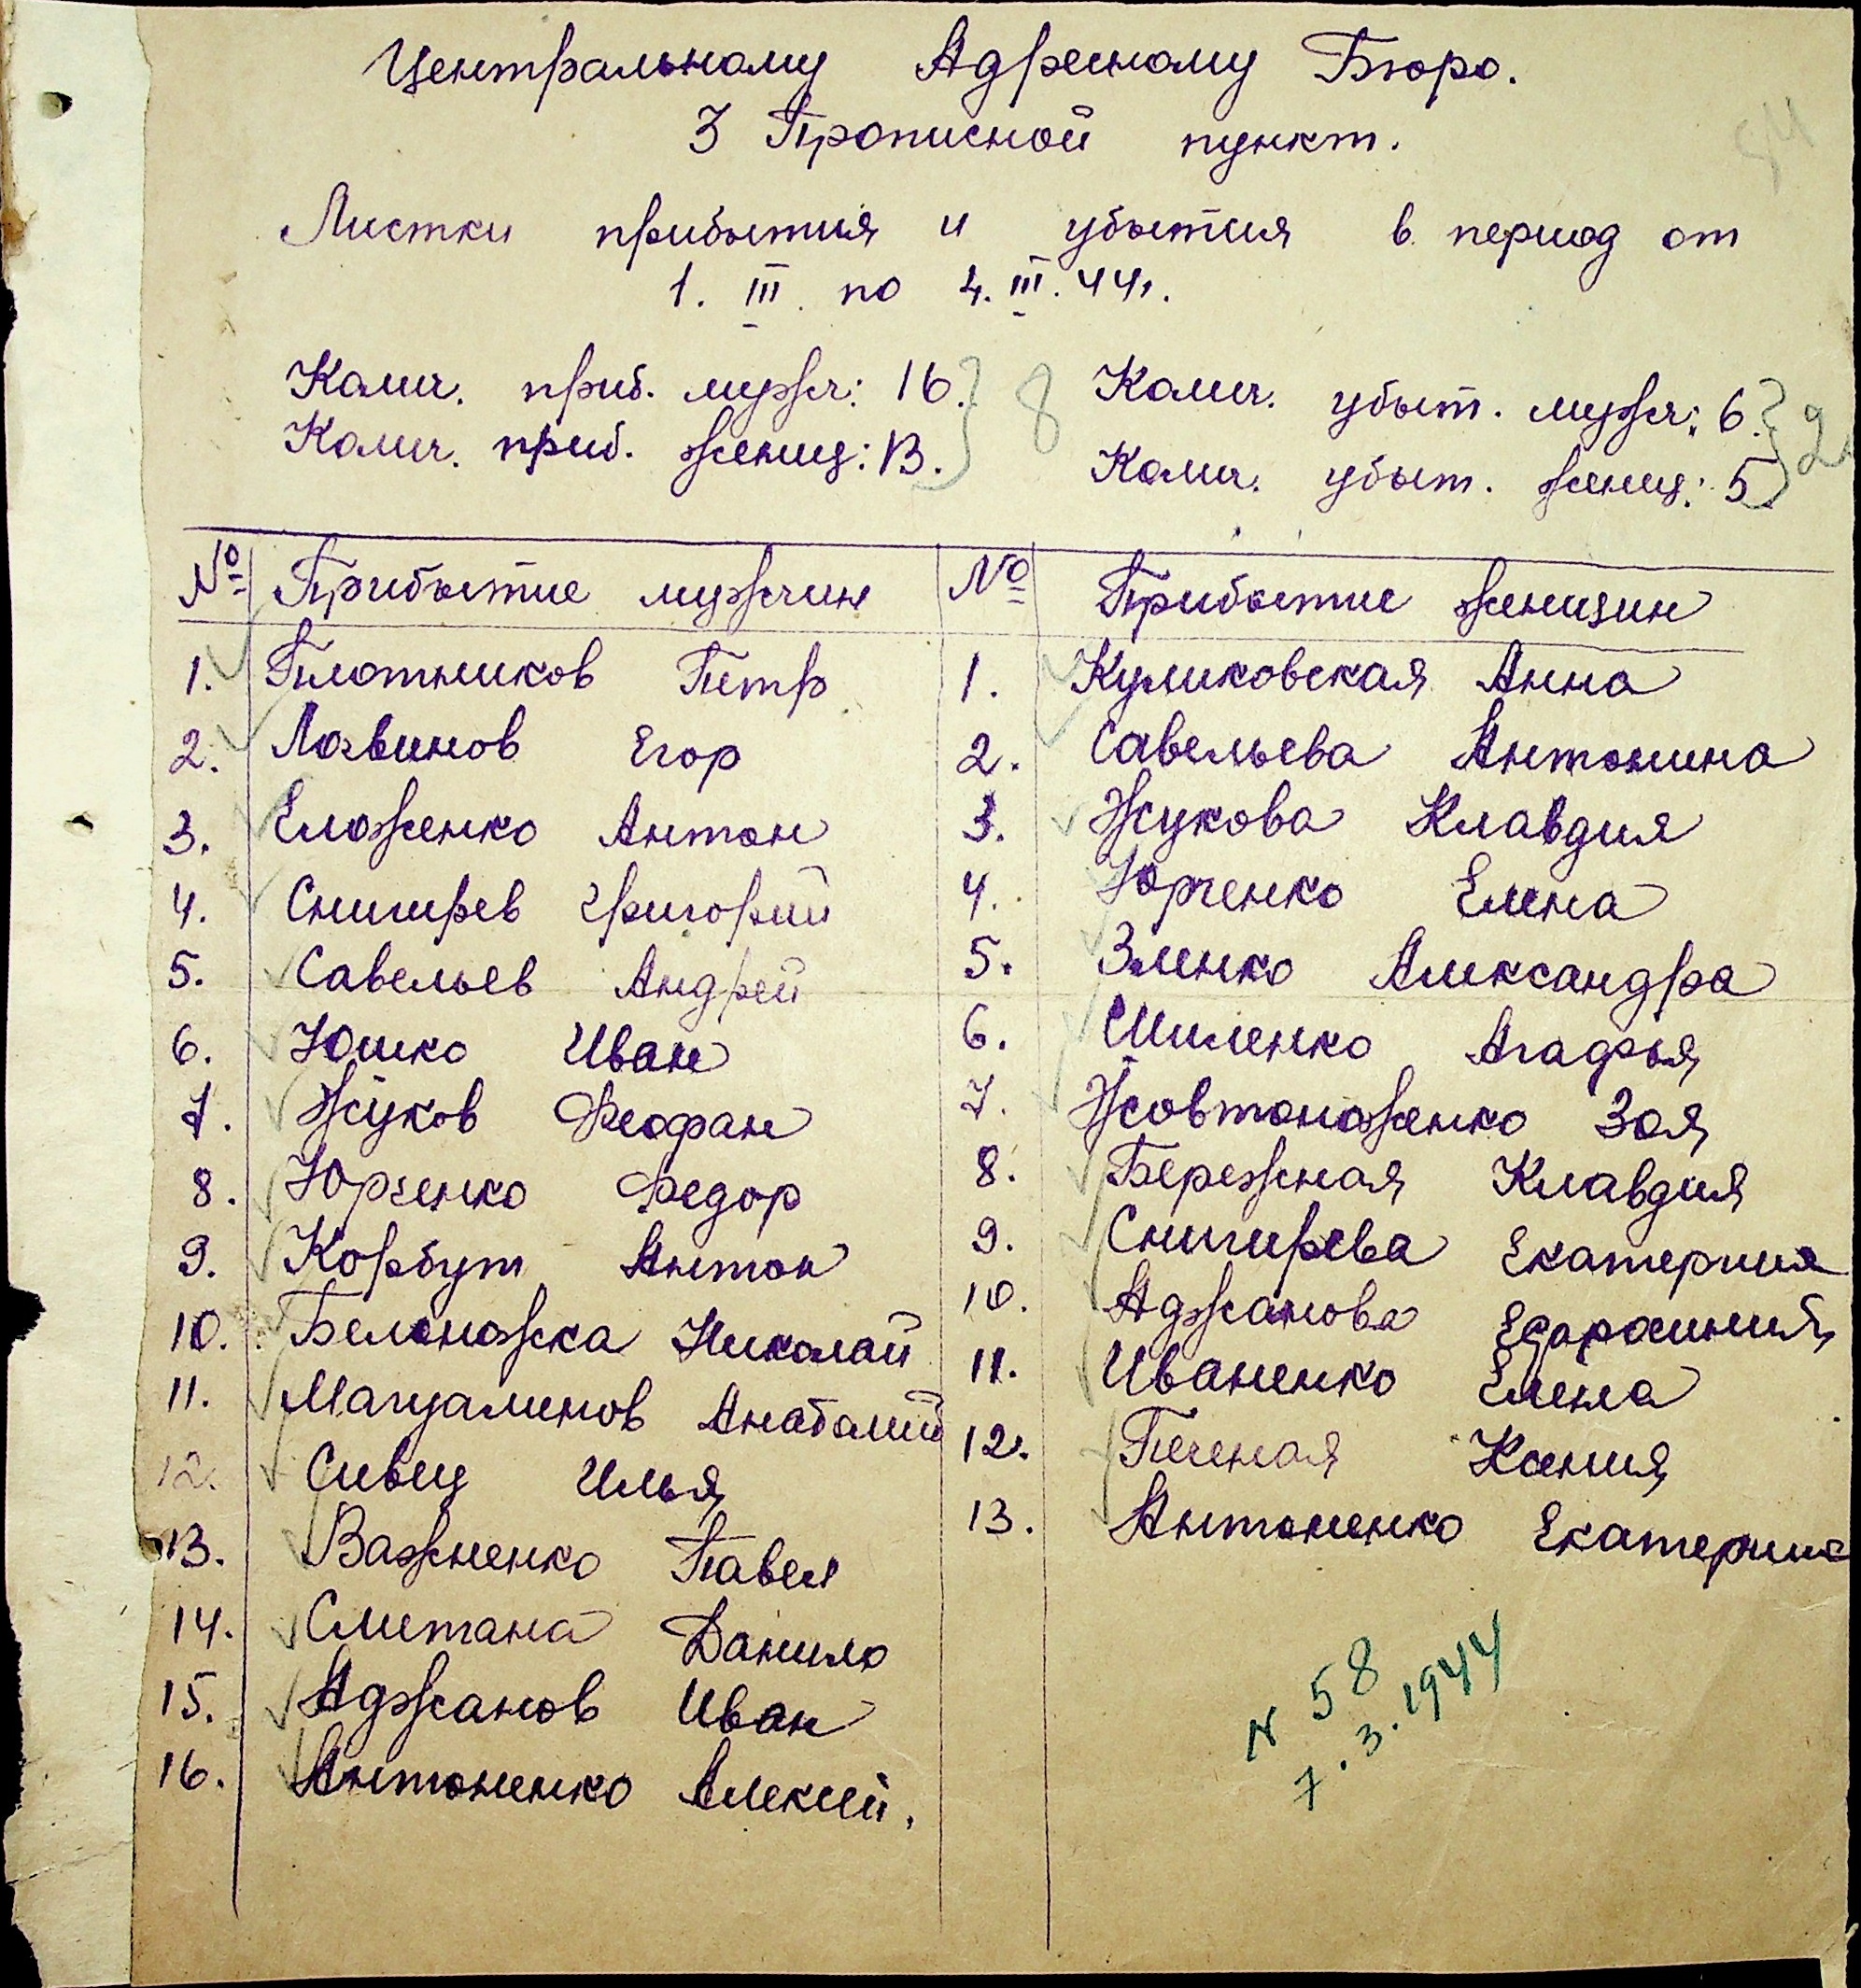 Центральному Адресному Бюро.
3 Прописной пункт.
Листки прибытия и убытия в период от
1. III. по 4. III. 44г.
Колич. приб. мужч: 16. } 8 Колич. убыт. мужч: 6. } 2
Колич. приб. женщ: 13. Колич. убыт. женщ: 5
№ Прибытие мужчин № Прибытие женщин
1. Плотников Петр 1. Куликовская Анна
2. Логвинов Егор 2. Савельева Антонина
3. Еложенко Антон 3. Жукова Клавдия
4. Снигирев Григорий 4. Юрченко Елена
5. Савельев Андрей 5. Зленко Александра
6. Юшко Иван 6. Шиленко Агафья
7. Жуков Феофан 7. Жовтоноженко Зоя
8. Юрченко Федор 8. Бережная Клавдия
9. Корбут Антон 9. Снигирева Екатерина
10. Белоножка Николай 10. Аджанова
11. 11. Иваненко Елена
12. Сивец Илья 12. Печеная Ксения
13. Важненко Павел 13. Антоненко Екатерина
14. Сметана Данило
15. Аджанов Иван
16. Антоненко Алексей.
N 58
7.3.1944